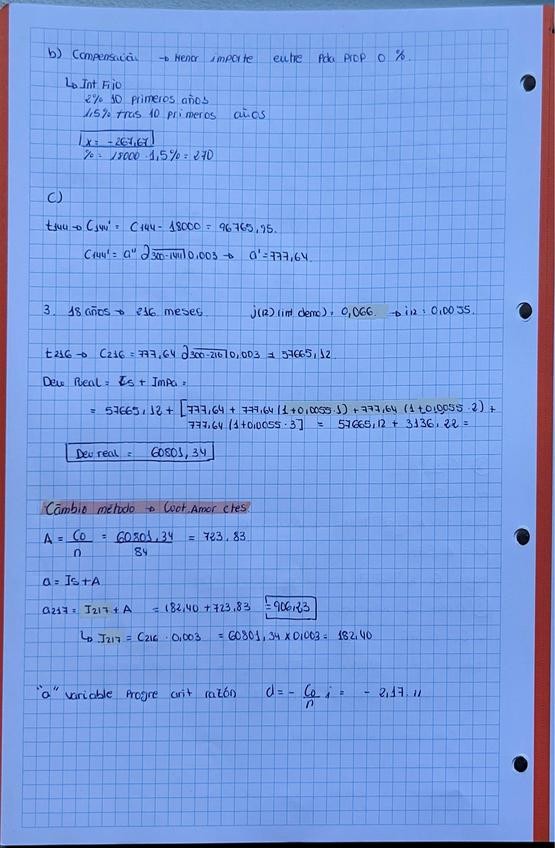 b) Compensación → Menor importe entre Pda Prop o %.
↳ Int Fijo
2% 10 primeros años
1,5% tras 10 primeros años
x = -267,67
% = 18000 · 1,5% = 270
c)
t144 → C144' = C144 - 18000 = 96765,95.
C144' = a'' a300-144|0,003 → a' = 777,64.
3. 18 años → 216 meses. j(12)(int demo) = 0,066. → i12 = 0,0055.
t216 → C216 = 777,64 a300-216|0,003 = 57665,12.
Deu Real = Is + Impa =
= 57665,12 + [777,64 + 777,64 (1+0,0055·1) + 777,64 (1+0,0055·2) +
777,64 (1+0,0055·3] = 57665,12 + 3136,22 =
Deu real = 60801,34
Cámbio método → Coot. Amor ctes
A = Co/n = 60801,34/84 = 723,83
a = Is + A
a217 = I217 + A = 182,40 + 723,83 = 906,23
↳ I217 = C216 · 0,003 = 60801,34 x 0,003 = 182,40
"a" variable Progre arit razón d = - Co/n i = - 2,17 //